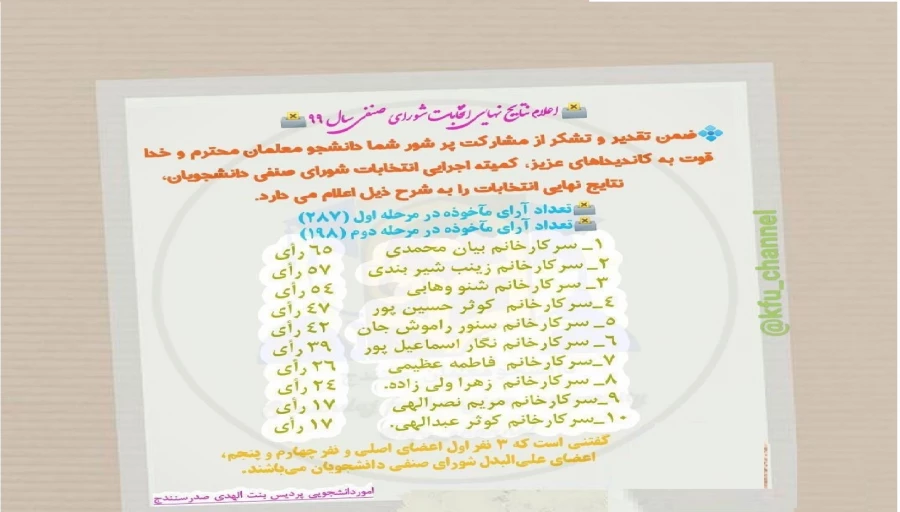 اعلام نتایج نهایی انتخابات شورای صنفی سال ۹۹
ضمن تقدیر و تشکر از مشارکت پر شور شما دانشجو معلمان محترم و خدا
قوت به کاندیداهای عزیز، کمیته اجرایی انتخابات شورای صنفی دانشجویان،
نتایج نهایی انتخابات را به شرح ذیل اعلام می دارد.
تعداد آرای مآخوذه در مرحله اول (۲۸۷)
تعداد آرای مآخوذه در مرحله دوم (۱۹۸)
۱_ سرکارخانم بیان محمدی ۶۵ رأی
۲_ سرکارخانم زینب شیر بندی ۵۷ رأی
۳_ سرکارخانم شنو وهابی ۵۴ رأی
۴_سرکارخانم کوثر حسین پور ۴۷ رأی
۵_ سرکارخانم سنور راموش جان ۴۲ رأی
۶_ سرکارخانم نگار اسماعیل پور ۳۹ رأی
۷_سرکارخانم فاطمه عظیمی ۲۶ رأی
۸_ سرکارخانم زهرا ولی زاده. ۲۴ رأی
۹_سرکارخانم مریم نصرالهی ۱۷ رأی
۱۰_سرکارخانم کوثر عبدالهی. ۱۷ رأی
گفتنی است که ۳ نفر اول اعضای اصلی و نفر چهارم و پنجم،
اعضای علی‌البدل شورای صنفی دانشجویان می‌باشند.
اموردانشجویی پردیس بنت الهدی صدرسنندج
@kfu_channel